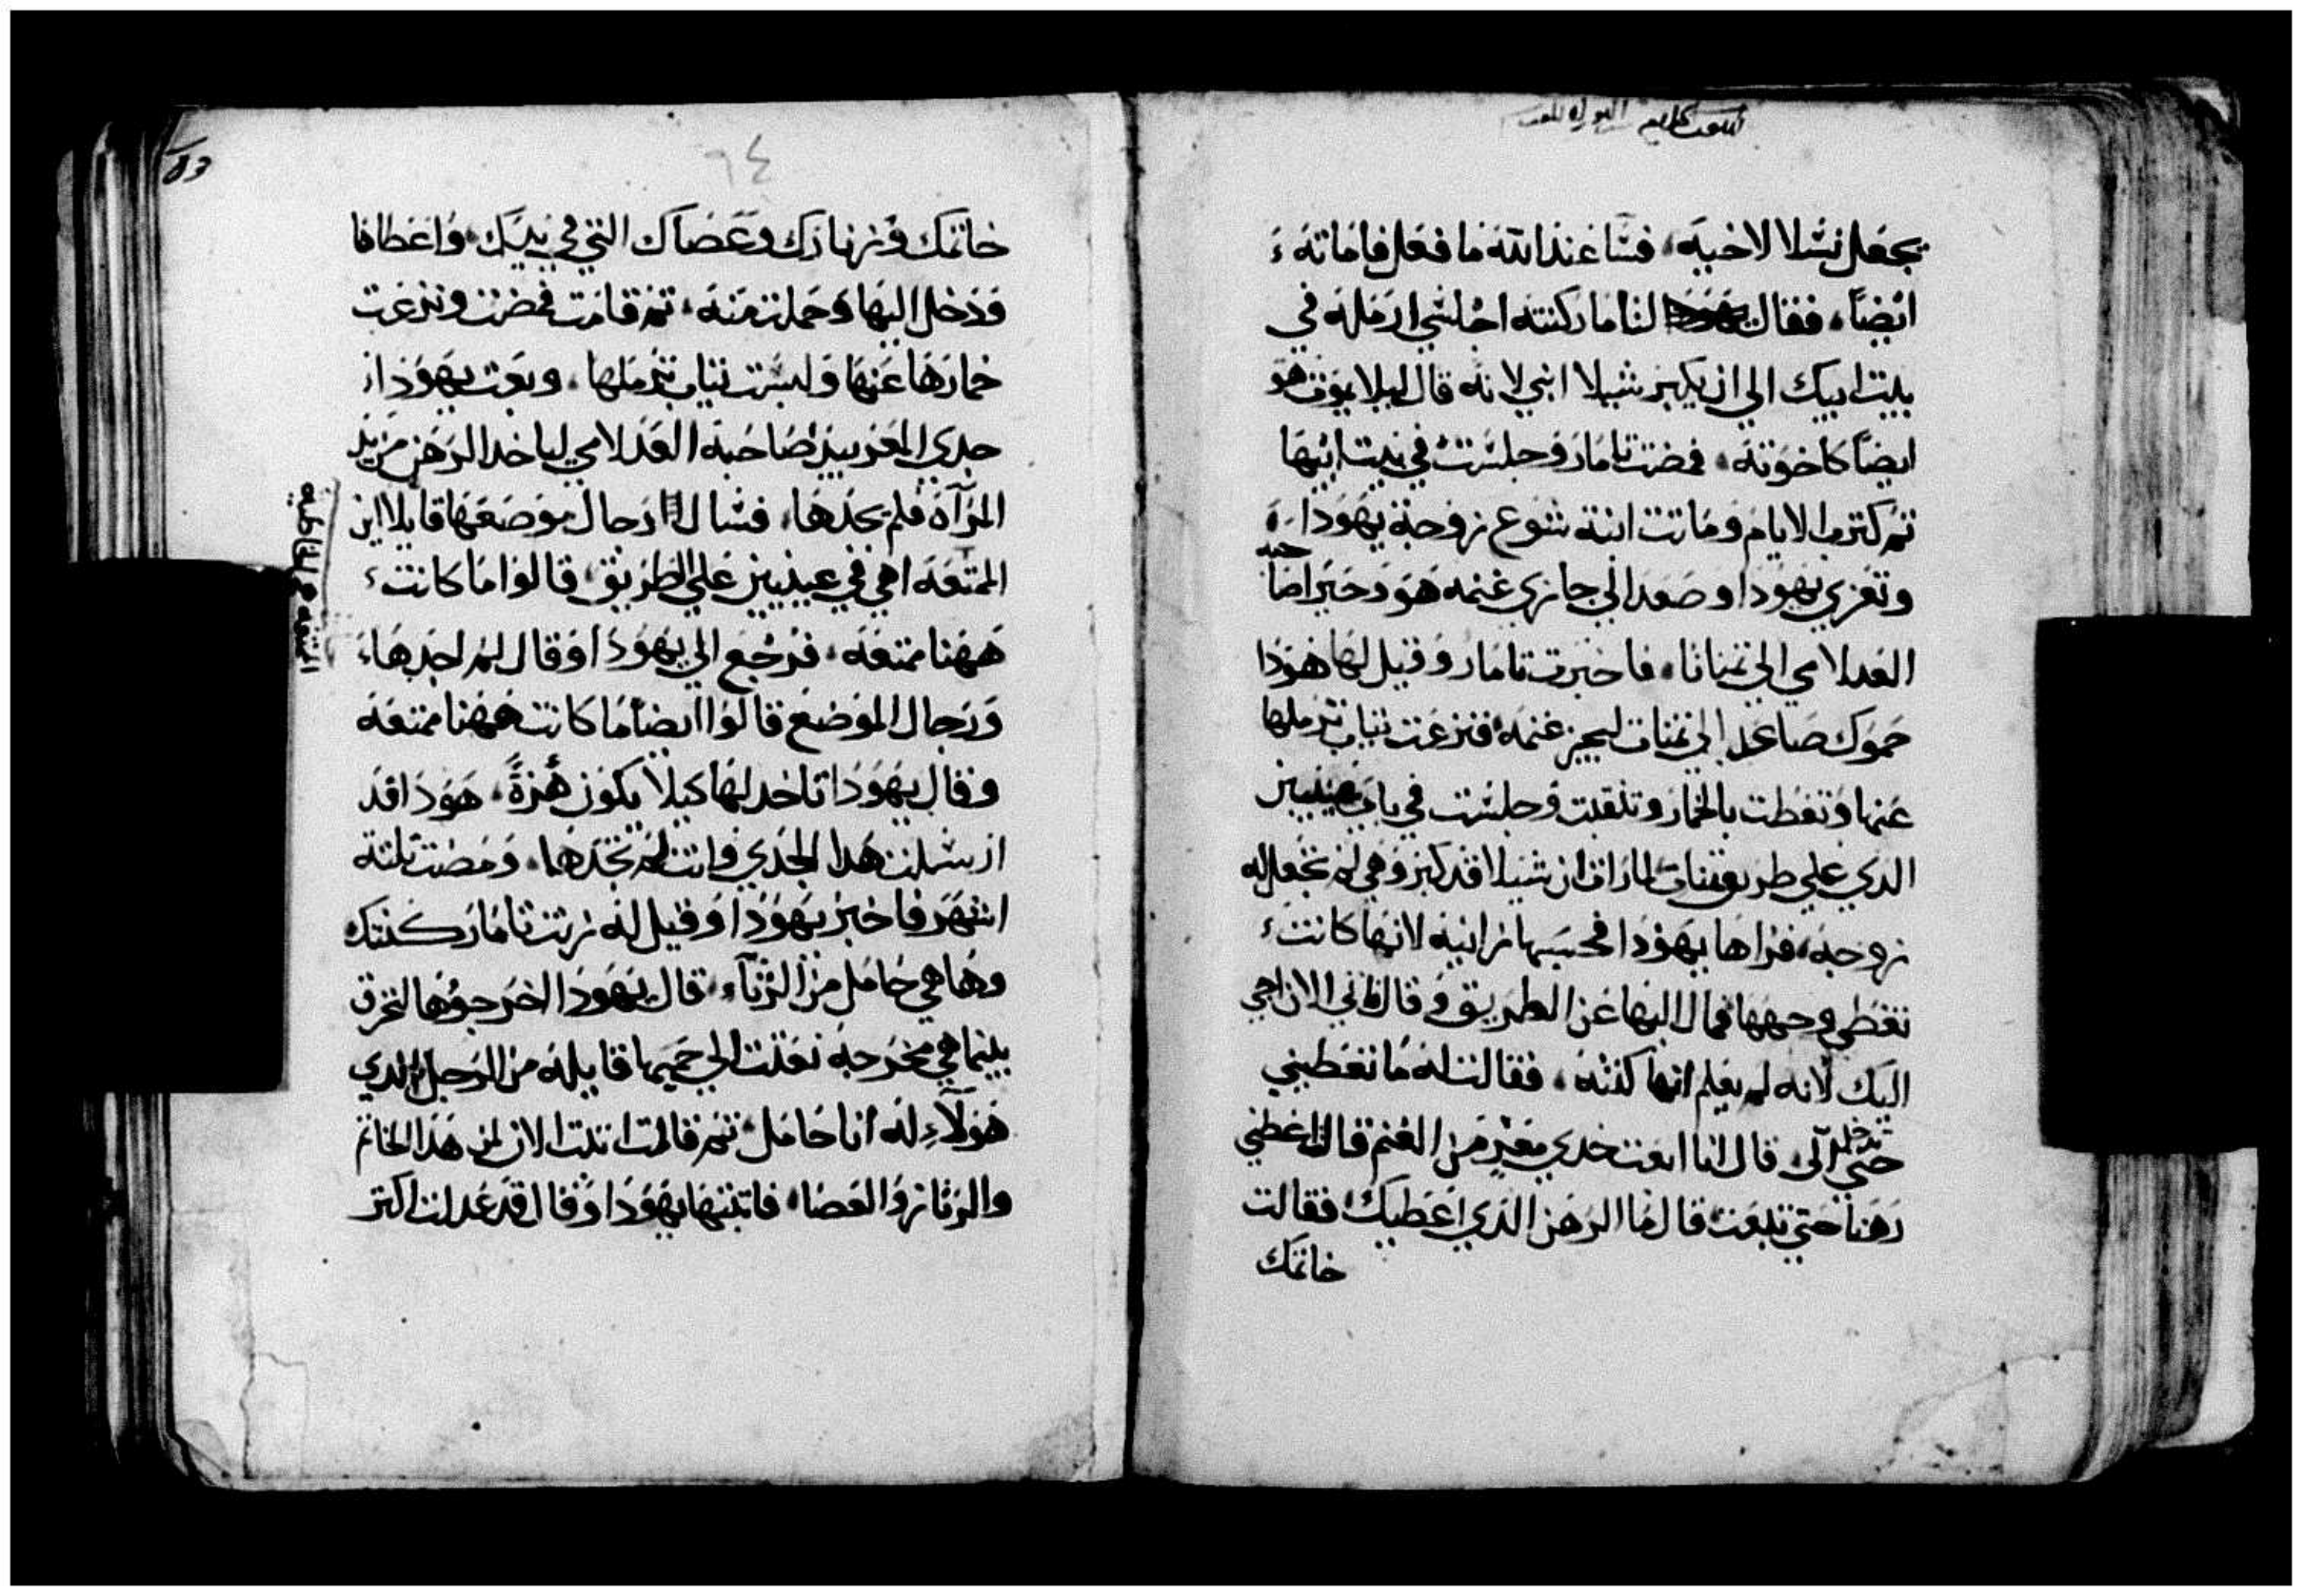 يجعل نسلا لاخيه، فسا عند الله ما فعل فاماته
ايضاً، فقال يهودا لتامار كنته اجلسي ارمله في
بيت ابيك الي ان يكبر شيلا ابني لانه قال ليلا يموت هو
ايضاً كاخوته، فمضت تامار وجلست في بيت ابيها
ثم كترت الايام وماتت ابنة شوع زوجة يهودا
وتعزي يهودا وصعد الي جازي غنمه هو وحيرا صاحبه
العدلامي الي تمناتا، فاخبرت تامار وقيل لها هودا
حموك صاعد الي تمنات ليجز غنمه فنزعت تياب ترملها
عنها وتغطت بالخمار وتنقبت وجلست في باب عينيين
الدي علي طريق تمنات لما رات ان شيلا قد كبر وهي لم تجعل له
زوجه، فراها يهودا فحسبها زانيه لانها كانت
تغطي وجهها فمال اليها عن الطريق وقال لها اني الان اجي
اليك لانه لم يعلم انها كنته، فقالت له ما تعطيني
حتي تدخل الى قال انا ابعت جدي معيز من الغنم قالت اعطني
رهنا حتي تبعت قال ما الرهن الدي اعطيك فقالت
خاتمك
٦٤
خاتمك وزنارك وعصاك التي في يديك، واعطاها
ودخل اليها وحملت منه، تم قامت فمضت ونزعت
خمارها عنها ولبست تياب ترملها، وبعت يهودا
جدي المعز بيد صاحبه العدلامي لياخد الرهن من يد
المرآة فلم يجدها، فسال رجال موضعها قايلا اين
الممتعه اهي في عينيين علي الطريق، قالوا ما كانت
ههنا ممتعه، فرجع الي يهودا وقال لم اجدها
ورجال الموضع قالوا ايضاً ما كانت ههنا ممتعه
وقال يهودا تاخد لها كيلا يكون هُزةً، هودا قد
ارسلت هدا الجدي وانت لم تجدها، ومضت تلتة
اشهر فاخبر يهودا وقيل له زنت تامار كنتك
وها هي حامل من الزناء، قال يهودا اخرجوها لتحرق
بينما هي مخرجه بعتت الي حميها قايله من الرجل الدي
هولآءِ له انا حامل، تم قالت اتبت الان لمن هدا الخاتم
والزنار والعصا، فاتبتها يهودا وقال قد عدلت اكتر